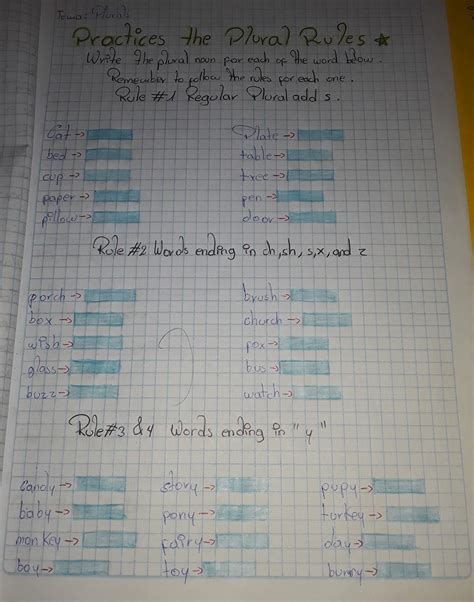 Tema: Plurals
Practices the Plural Rules
Write the plural noun por each of the word below.
Remember to follow the rules for each one.
Rule #1 Regular Plural add s.
Cat → Plate →
bed → table →
cup → tree →
paper → pen →
pillow → door →
Rule #2 Words ending in ch, sh, s, x, and z
porch → brush →
box → church →
wish → fox →
glass → bus →
buzz → watch →
Rule #3 & 4 Words ending in "y"
Candy → story → pupy →
baby → pony → turkey →
monkey → fairy → day →
boy → toy → bunny →